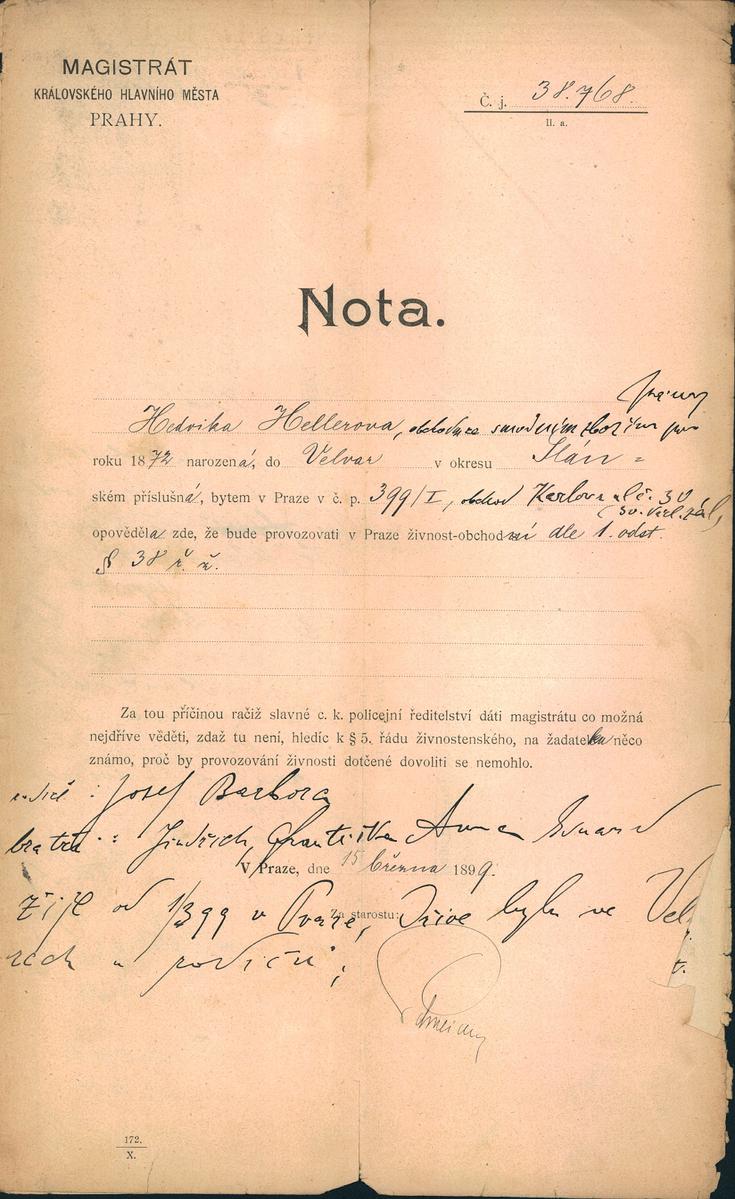 MAGISTRÁT
KRÁLOVSKÉHO HLAVNÍHO MĚSTA
PRAHY.
Č. j. 38.768.
II. a.
Nota.
Hedvika Hellerova, obchodnice smíšeným zbožím
roku 1872 narozená, do Velvar v okresu Slan-
ském příslušná, bytem v Praze v č. p. 399/I, obchod Karlova ul č. 30
opověděla zde, že bude provozovati v Praze živnost-obchodní dle 1. odst.
§ 38 ř. ž.
Za tou příčinou račiž slavné c. k. policejní ředitelství dáti magistrátu co možná
nejdříve věděti, zdaž tu není, hledíc k § 5. řádu živnostenského, na žadatelku něco
známo, proč by provozování živnosti dotčené dovoliti se nemohlo.
rodiče : Josef Barbora
bratři : Jindřich, Františka Anna Eduard
V Praze, dne 15 března 1899.
Žije od 1/3 99 v Praze, Dříve byla ve Vel
Za starostu:
rách u rodičů;
172.
X.